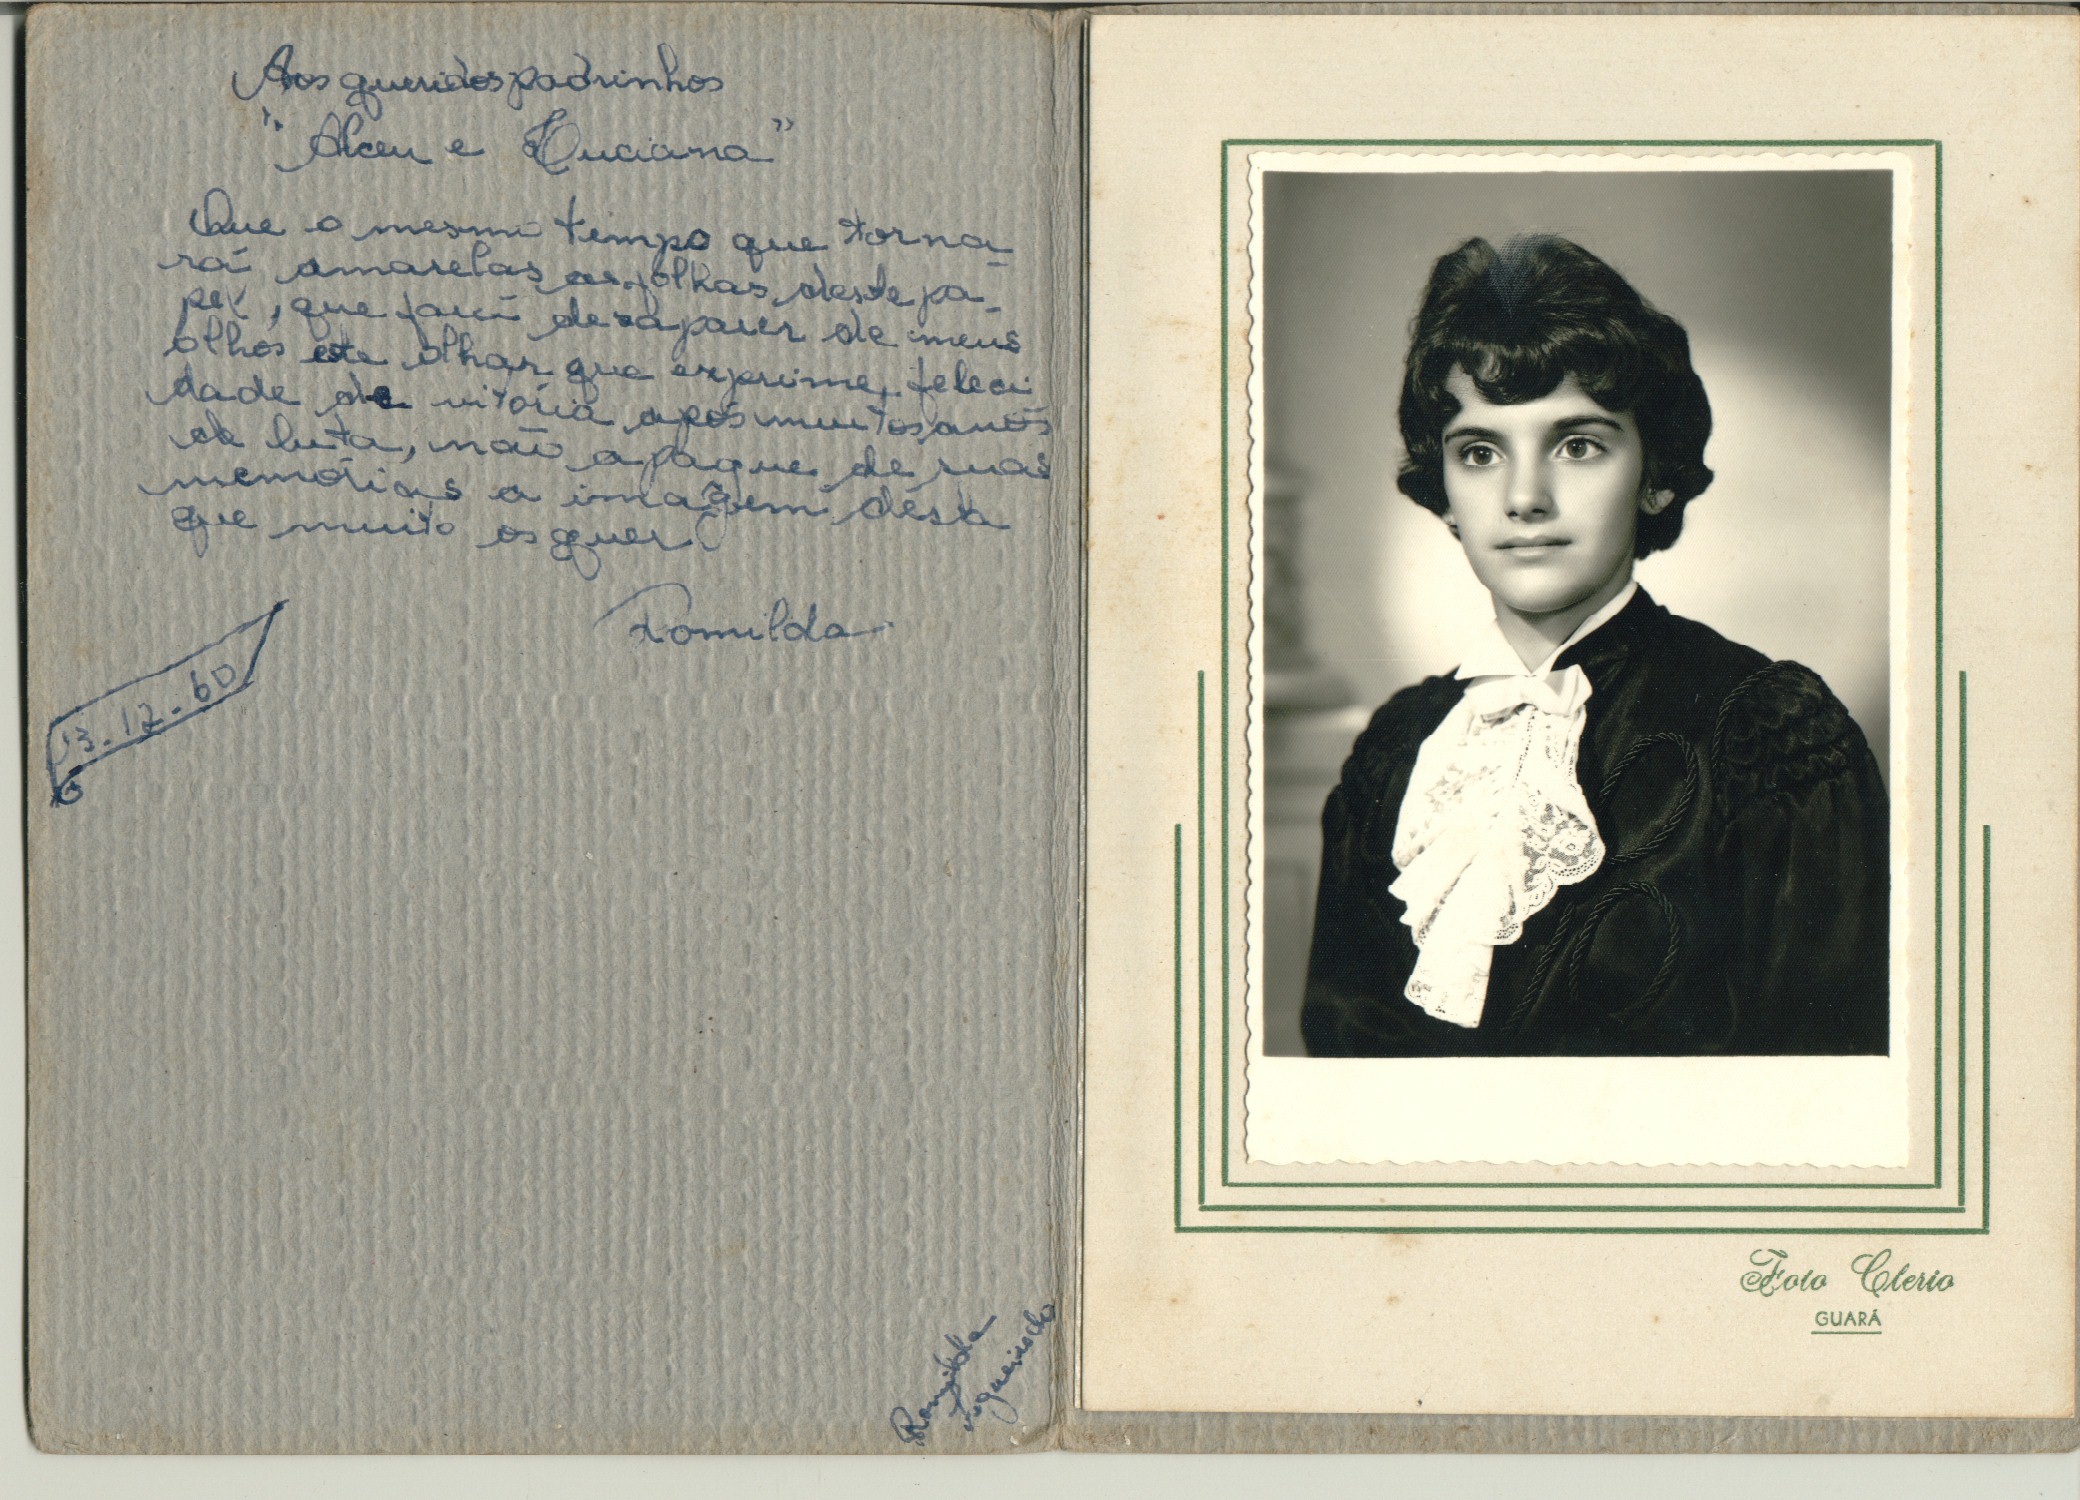 Aos queridos padrinhos
"Alceu e Luciana"
Que o mesmo tempo que torna-
rá amarelas as folhas deste pa-
pel, que fará desaparecer de meus
olhos este olhar que exprime, feleci
dade de vitória após muitos anos
de luta, não apague de suas
memórias a imagem desta
que muito os quer.
Romilda
13-12-60
Romilda
Foto Clerio
GUARÁ